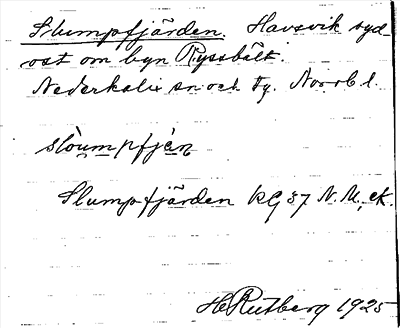 Slumpfjärden. Havsvik syd-
ost om byn Ryssbält.
Nederkalix sn. och tg. Norrb l.
slòumpfjèn
Slumpfjärden KG 37 N.M. ek.
H Rutberg 1925